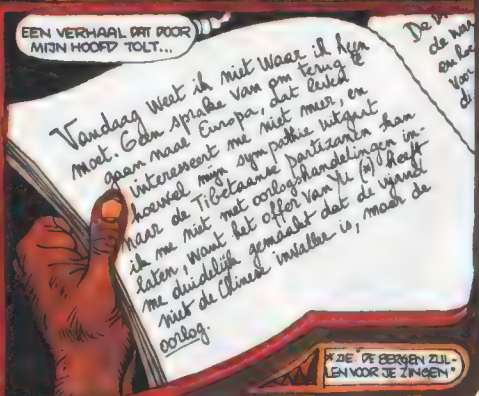 EEN VERHAAL DAT DOOR
MIJN HOOFD TOLT...
Vandaag weet ik niet waar ik heen
moet. Geen sprake van om terug te
gaan naar Europa, dat beeld
interesseert me niet meer, en
hoewel mijn sympathie uitgaat
naar de Tibetaanse partizanen kan
ik me niet met oorlogshandelingen in-
laten, want het offer van Yu (*) heeft
me duidelijk gemaakt dat de vijand
niet de Chinese invaller is, maar de
oorlog.
De
de
en
* ZIE "DE BERGEN ZUL-
LEN VOOR JE ZINGEN"